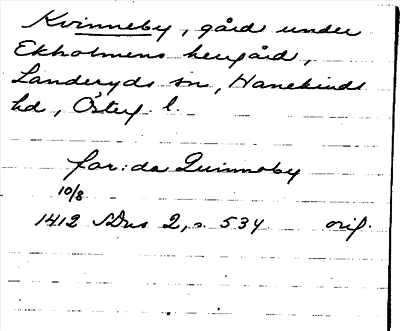 Kvinneby, gård under
Ekholmens herrgård,
Landeryds sn, Hanekinds
hd, Österg. l.
for: da Quinnoby
10/8
1412 SDns 2, s. 534 orig.